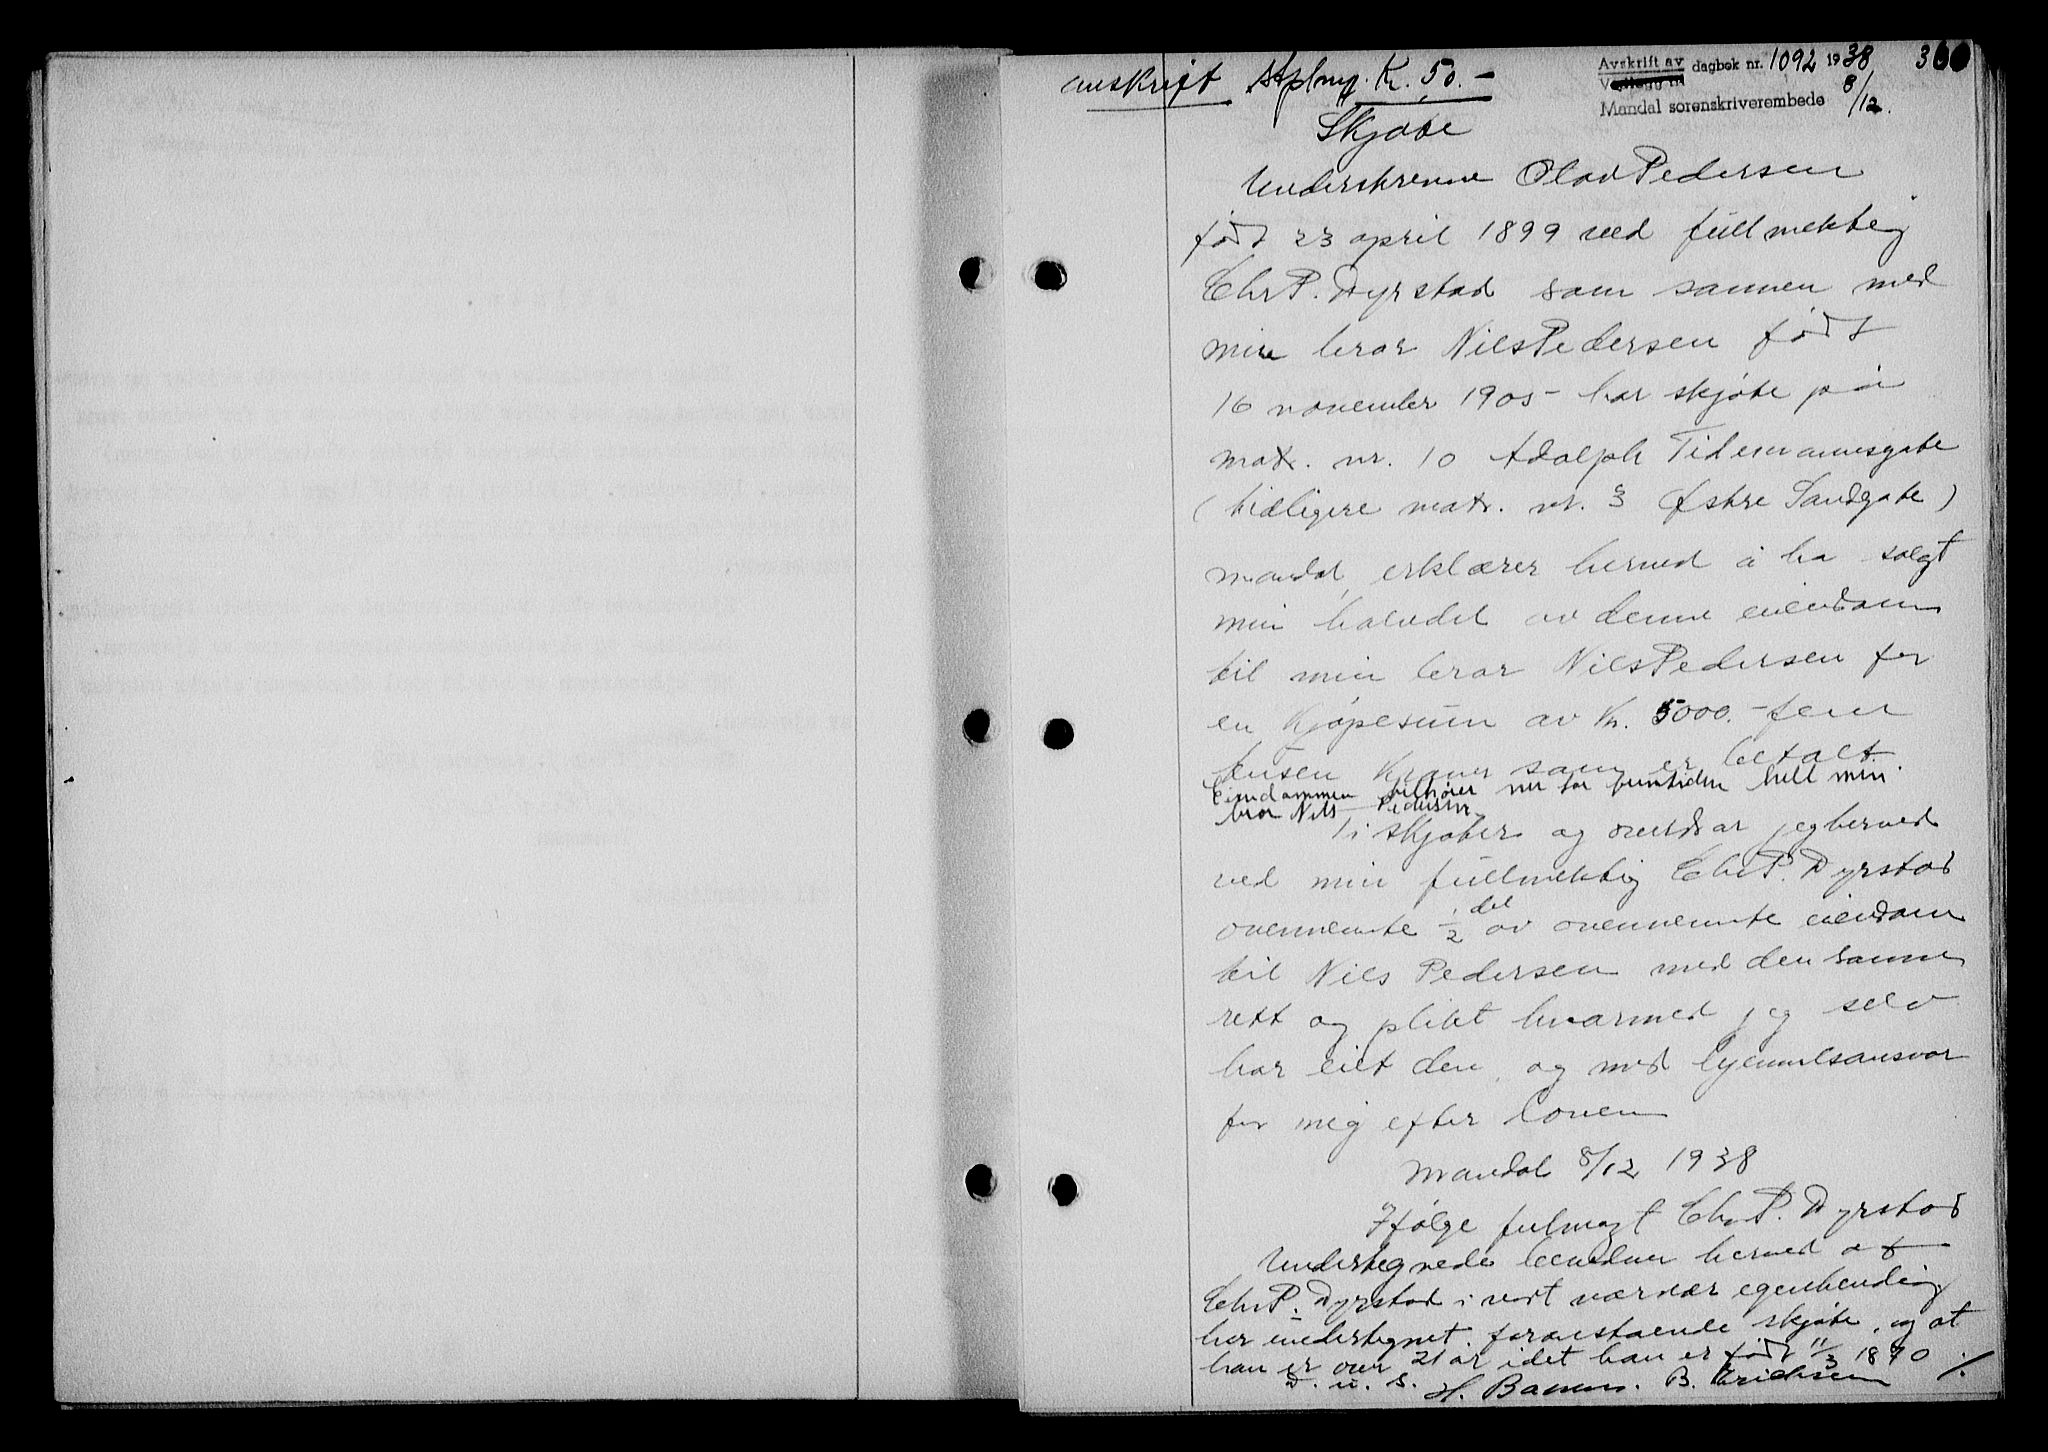 avskrift Stplmg. K. 50.-
Avskrift av dagbok nr. 1092 1938 300
Vedlegg til
Mandal sorenskriverembede 8/12.
Skjøte
Underskrevne Olav Pedersen
født 23 april 1899 ved fullmektig
Chr P. Dyrstad som sammen med
min bror Nils Pedersen født
16 november 1905 - har skjøte på
matr. nr. 10 Adolph Tidemannsgate
(tidligere matr. nr. 3 Østre Sandgate)
Mandal, erklærer herved å ha solgt
min halvdel av denne eiendom
til min bror Nils Pedersen for
en kjøpesum av Kr. 5000.- fem
tusen Kroner som er betalt.
Eiendommen tilhører nu for fremtiden helt min
bror Nils Pedersen
Ti skjøter og overdrar jeg herved
ved min fullmektig Chr P. Dyrstad
ovennemte 1/2 del av ovennemte eiendom
til Nils Pedersen med den samme
rett og plikt hvormed jeg selv
har eiet den, og med hjemmelsansvar
for mig efter loven
Mandal 8/12 1938
Ifølge fulmagt Chr P. Dyrstad
Undertegnede bevidner herved at
Chr P. Dyrstad i vort nærvær egenhendig
har undertegnet foranstaende skjøte, og at
han er over 21 år idet han er født 11/3 1870
D. u. s. H. B. Erichsen ./.